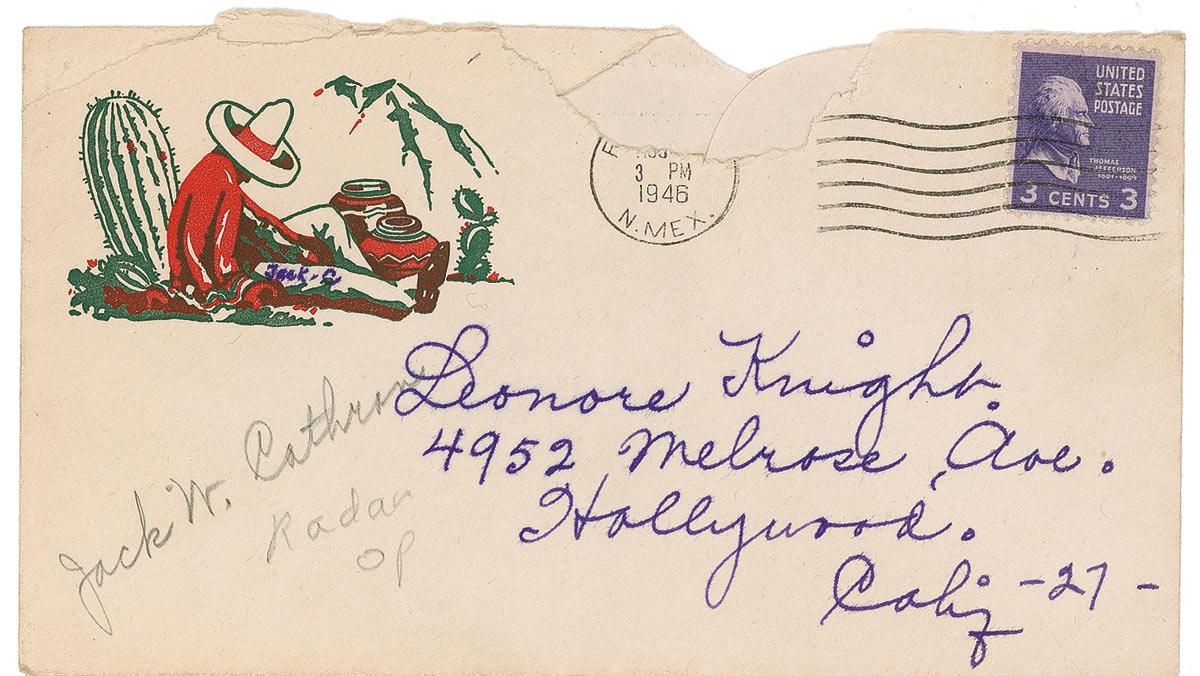 UNITED
STATES
POSTAGE
THOMAS
JEFFERSON
1801-1809
3 CENTS 3
3 PM
1946
N. MEX.
Jack-C
Leonore Knight.
4952 Melrose Ave.
Hollywood.
Calif -27-
Jack W.
Radar
OP